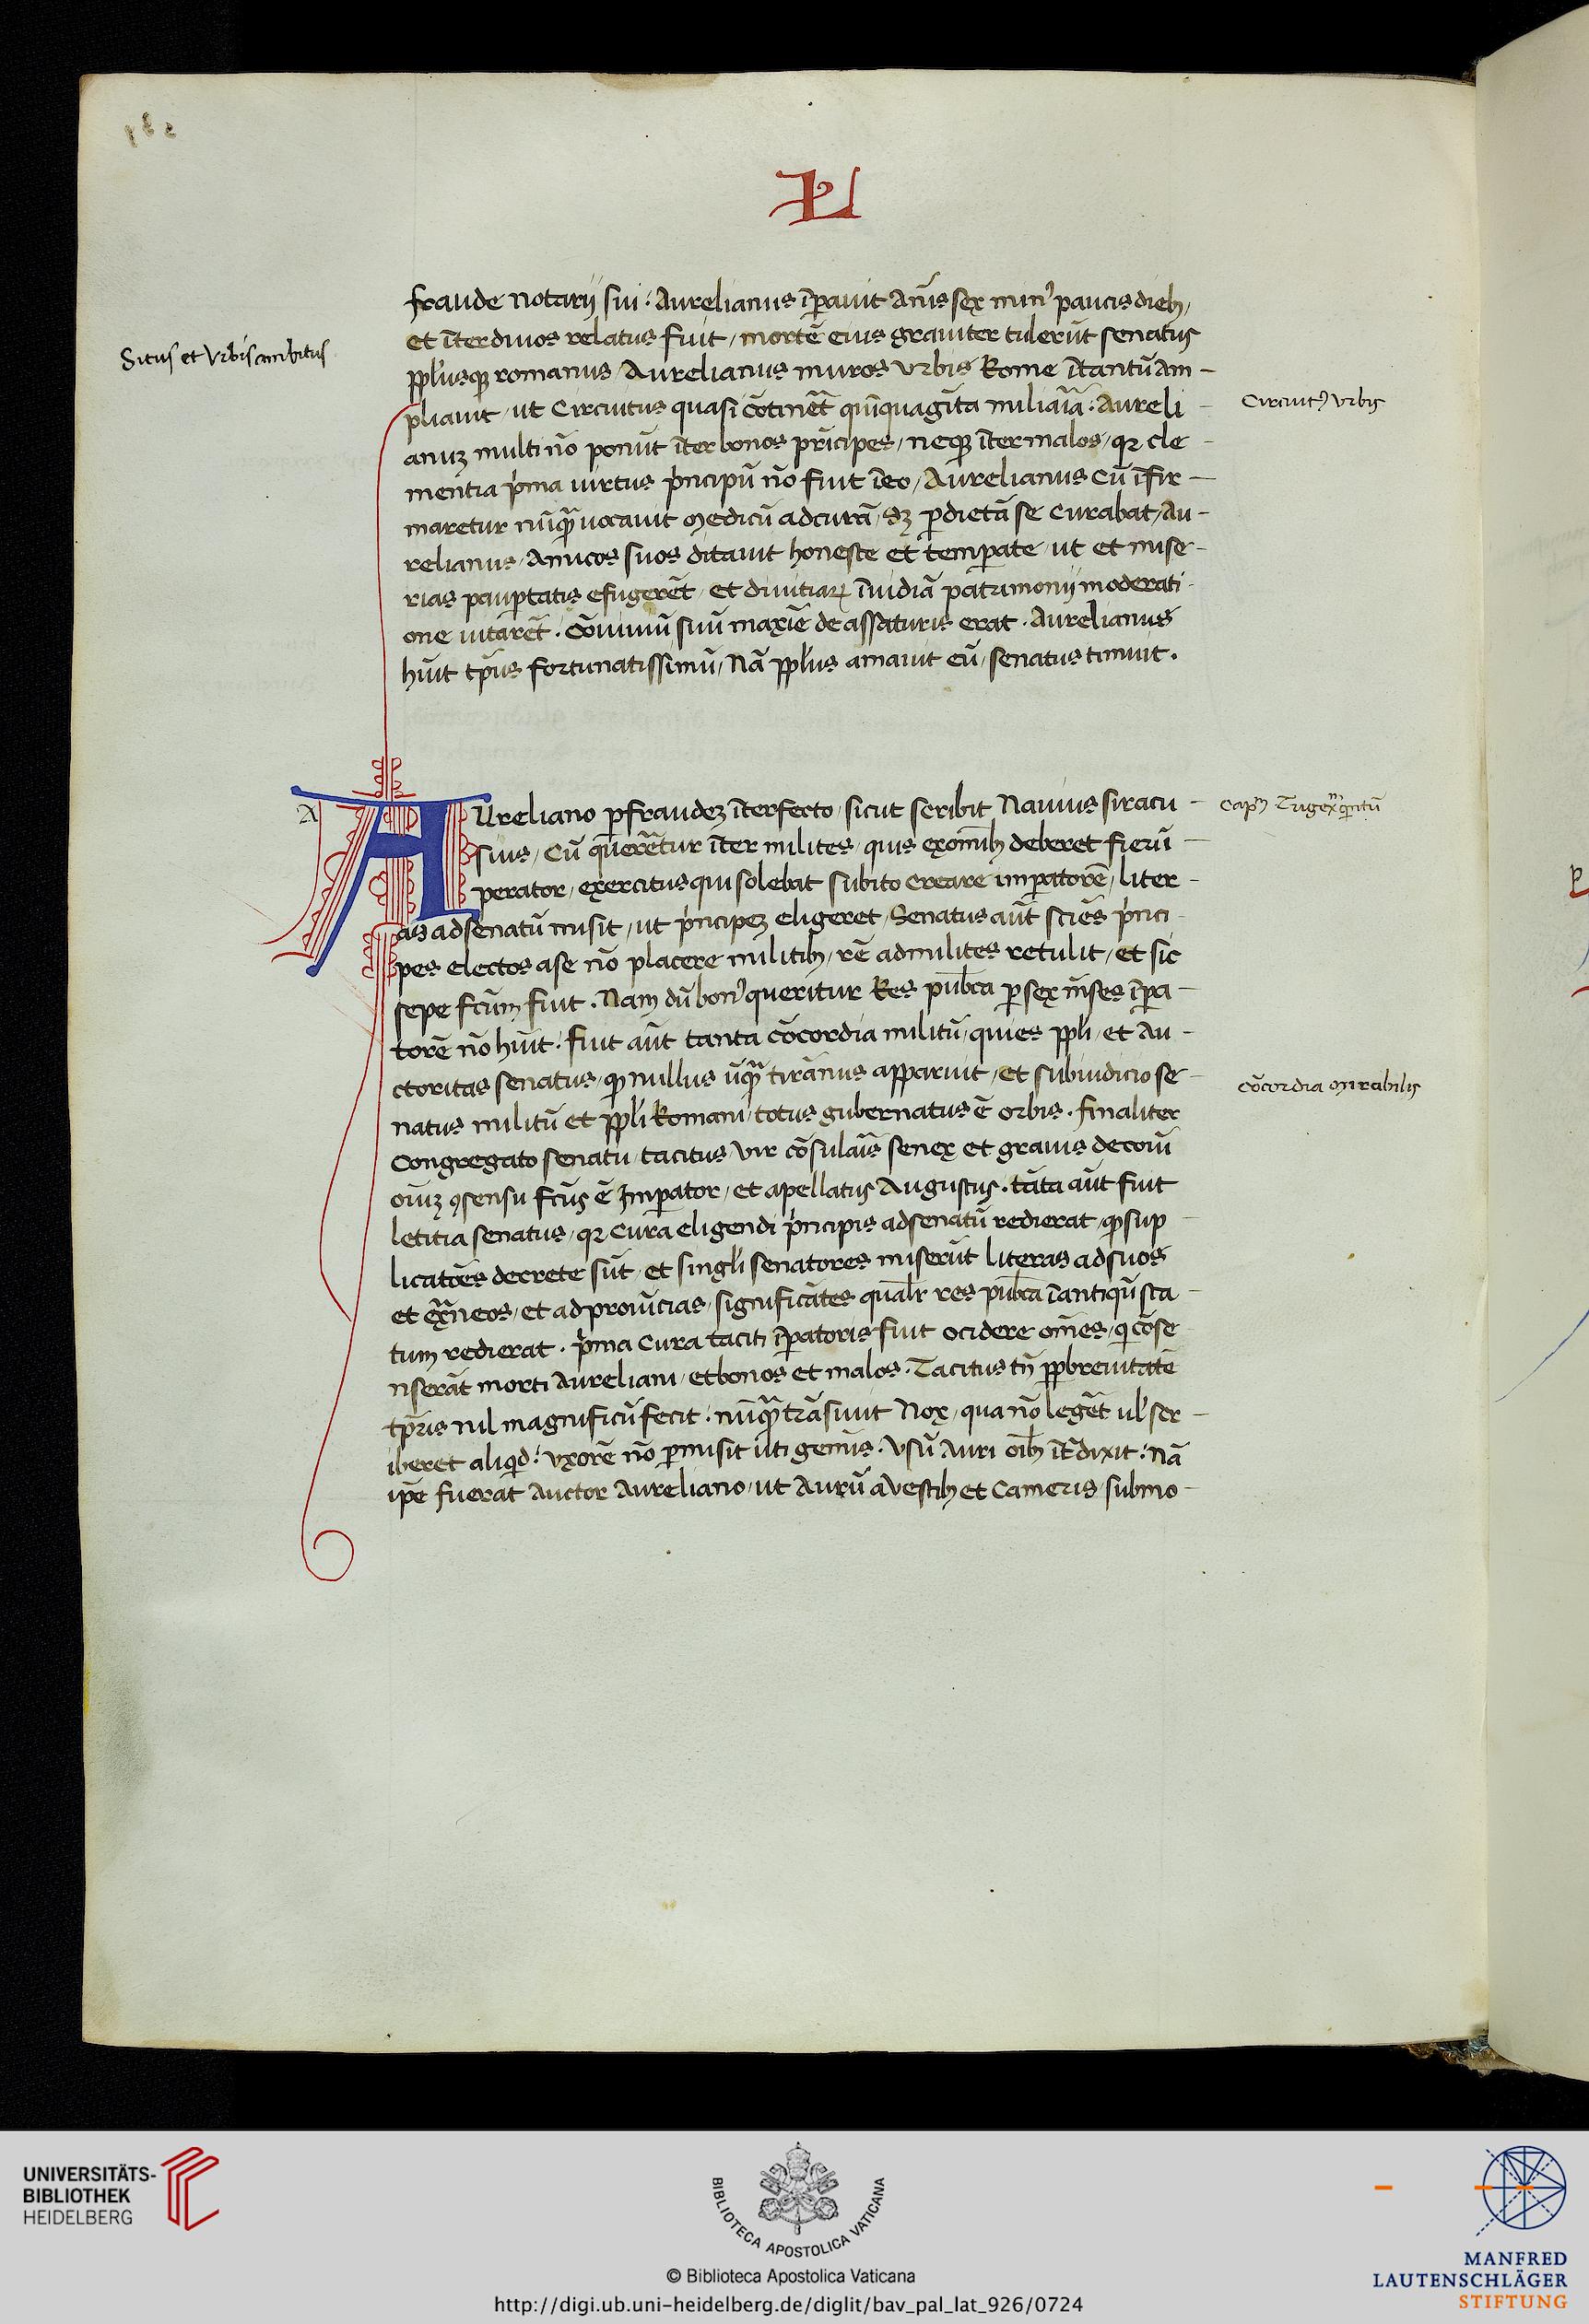 L
fraude notarij sui: Aurelianus īpavit Anīs sex min9 paucis dieb3,
et īter divos relatus fuit, mortē eius graviter tulerūt senatus
Situs et Urbis ambitus
pplusq3 romanus, Aurelianus muros urbis Rome ītantū am-
pliavit, ut Circuitus quasi cōtinēt quīquagīta miliaria: Aureli-
Circuit9 urbis
anu3 multi nō ponūt īter bonos prīcipes, neq3 īter malos, q3 cle-
mentia pima virtus pīncipū nō fuit ī eo, Aurelianus Cū īfir-
maretur nūq̄ vocavit Medicū ad curā, s3 p dietā se Curabat, Au-
relianus, Amicos suos ditavit honeste et temperate, ut et mise-
rias paup̄tatis efugerēt, et divitiaꝝ īvidiā patrimonij moderati-
one vitarēt. Cōvivīū suū maxīe de assaturis erat. Aurelianus
hūit tp̄us fortunatissimū, Nā pplus amavit eū, senatus timuit.
A
AUreliano p fraude3 īterfecto, sicut scribit Navius siracu-
Capm Trigexm qintū
sius, Cū quereretur īter milites, quis ex omīb3 deberet fieri ī-
perator, exercitus qui solebat subito creare imp̄atorē, liter-
as ad senatū misit, ut pīncipe3 eligeret, Senatus aūt sciēs pīnci-
pes electos a se nō placere militib3, rē ad milites retulit, et sic
sepe fcūm fuit. Nam dū bon9 queritur Res pub̄ca p sex mēses īpa-
torē nō hūit: fuit aūt tanta cōcordia militū, quies ppli, et au-
ctoritas senatus, q3 nullus ūq̄ tirānus apparuit, et sub iudicio se-
Cōcordia Mirabilis
natus militū et ppli Romani, totus gubernatus ē orbis. finaliter
Congregato senatu, tacitus, vir cōsularis senex et gravis de coī
oīu3 ꝯsensu fcūs ē Imperator, et apellatus Augustus. tāta aūt fuit
letitia senatus, q3 Cura eligendi pīncipis ad senatū redierat, q3 sup-
licatōes decrete sūt, et singli senatores miserūt literas ad suos
et ex̄neos, et ad provīcias, significātes qualr̄ res pub̄ca ī antiqū sta-
tum redierat. pima Cura taciti īpatoris fuit ocidere om̄es, q cōse-
nserāt morti Aureliani, et bonos et malos. Tacitus tn̄ pp brevitatē
tp̄ris nil magnificū fecit: nūq̄ trāsivit Nox, qua nō legēt ul' scr-
iberet aliqid: Uxorē nō p̄misit uti gemis. Usū Auri oīb3 īterdixit: Nā
ipe fuerat Auctor Aureliano, ut Aurū a Vestib3 et Cameris, submo-
UNIVERSITÄTS-
BIBLIOTHEK
HEIDELBERG
BIBLIOTECA APOSTOLICA VATICANA
© Biblioteca Apostolica Vaticana
http://digi.ub.uni-heidelberg.de/diglit/bav_pal_lat_926/0724
MANFRED
LAUTENSCHLÄGER
STIFTUNG